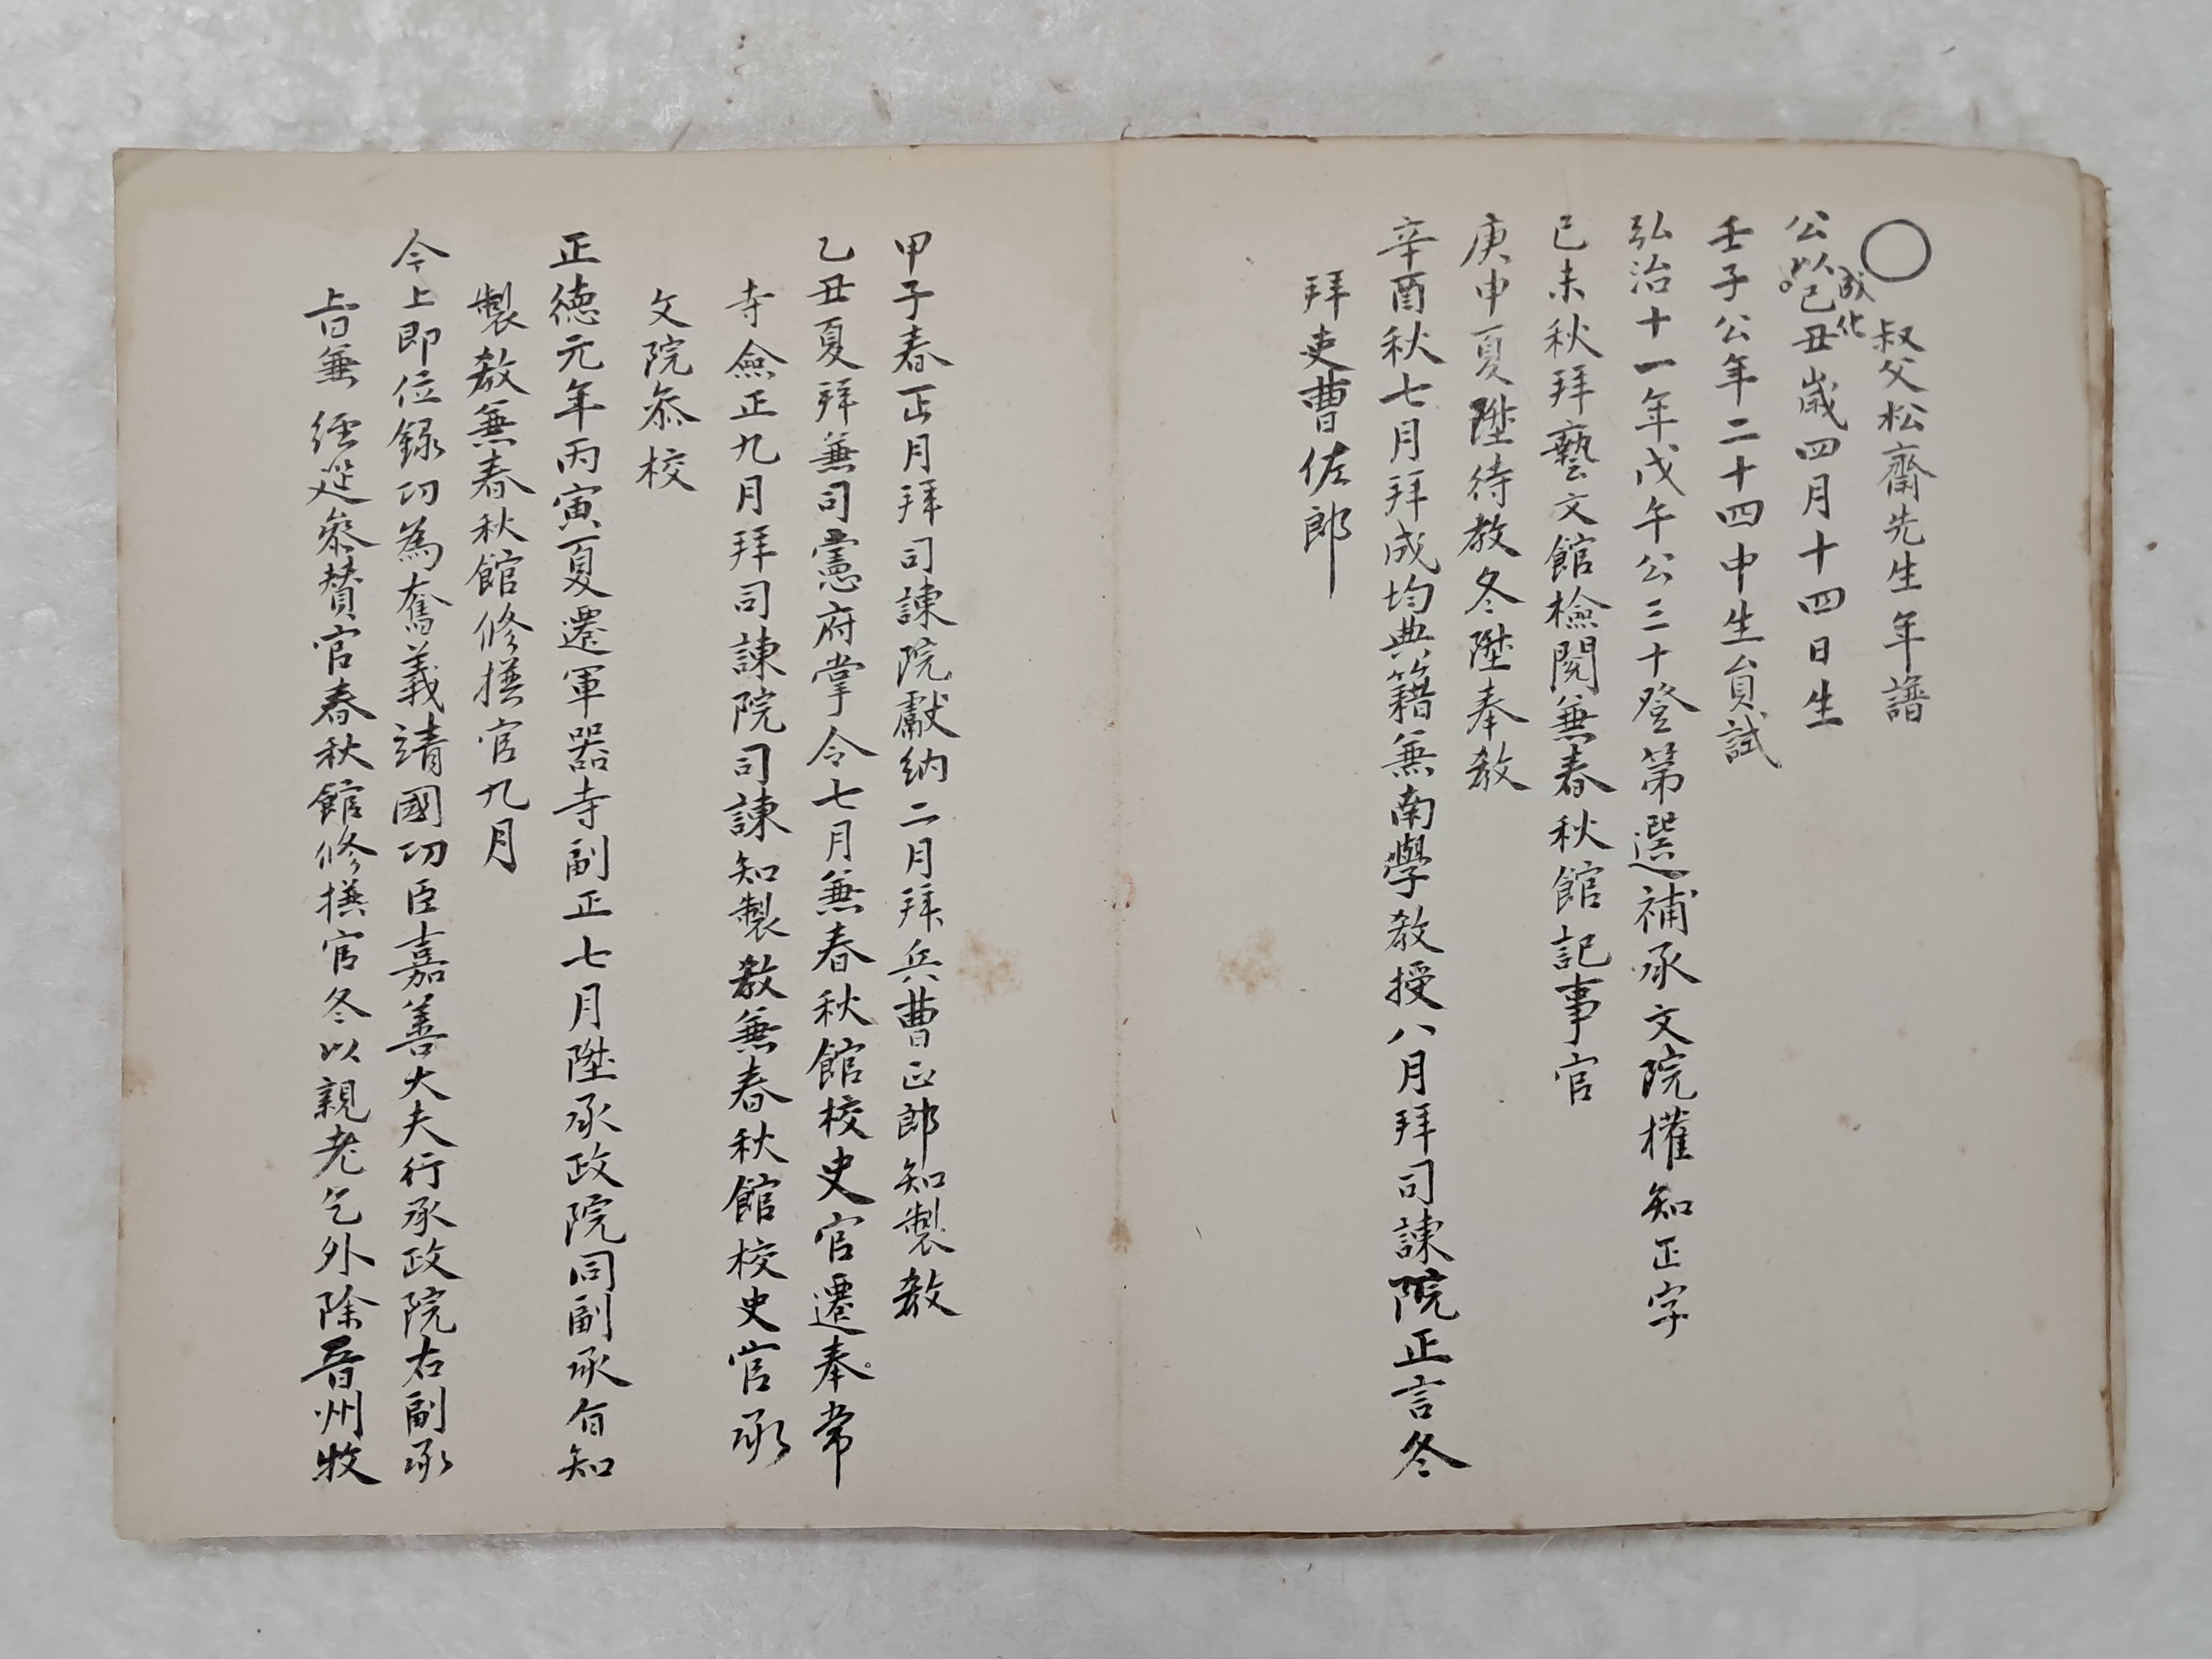 ○ 叔父松齋先生年譜
公以成化己丑歲四月十四日生
壬子公年二十四中生員試
弘治十一年戊午公三十登第選補承文院權知正字
己未秋拜藝文館檢閱兼春秋館記事官
庚申夏陞待教冬陞奉教
辛酉秋七月拜成均典籍兼南學教授八月拜司諫院正言冬
拜吏曹佐郎
甲子春正月拜司諫院獻納二月拜兵曹正郎知製教
乙丑夏拜兼司憲府掌令七月兼春秋館校史官遷奉常
寺僉正九月拜司諫院司諫知製教兼春秋館校史官承
文院叅校
正德元年丙寅夏遷軍器寺副正七月陞承政院同副承旨知
製教兼春秋館修撰官九月
今上即位錄功為奮義靖國功臣嘉善大夫行承政院右副承
旨兼 經筵叅贊官春秋館修撰官冬以親老乞外除晉州牧